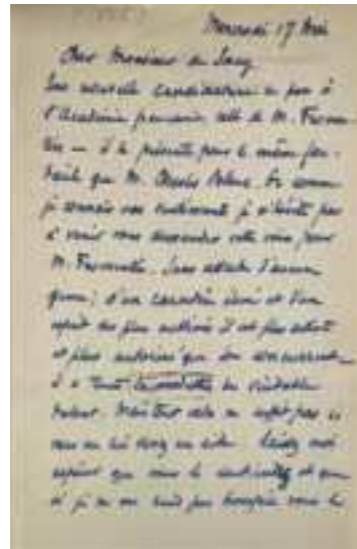 Mercredi 17 Mai
Cher Monsieur de Sacy
Une nouvelle candidature se pose à
l'Académie française, celle de M. Fromen
tin — il se présente pour le même fau
teuil que M. Charles Blanc. Et comme
je connais vos sentiments je n'hésite pas
à venir vous demander votre voix pour
M. Fromentin. Sans attache d'aucun
genre; d'un caractère élevé et d'un
esprit des plus cultivés il est plus artiste
et plus que son concurrent
il a tout du véritable
talent. Mais tout cela ne suffit pas si
vous ne lui
espérer que vous le et que
si je ne me suis pas trompée vous le